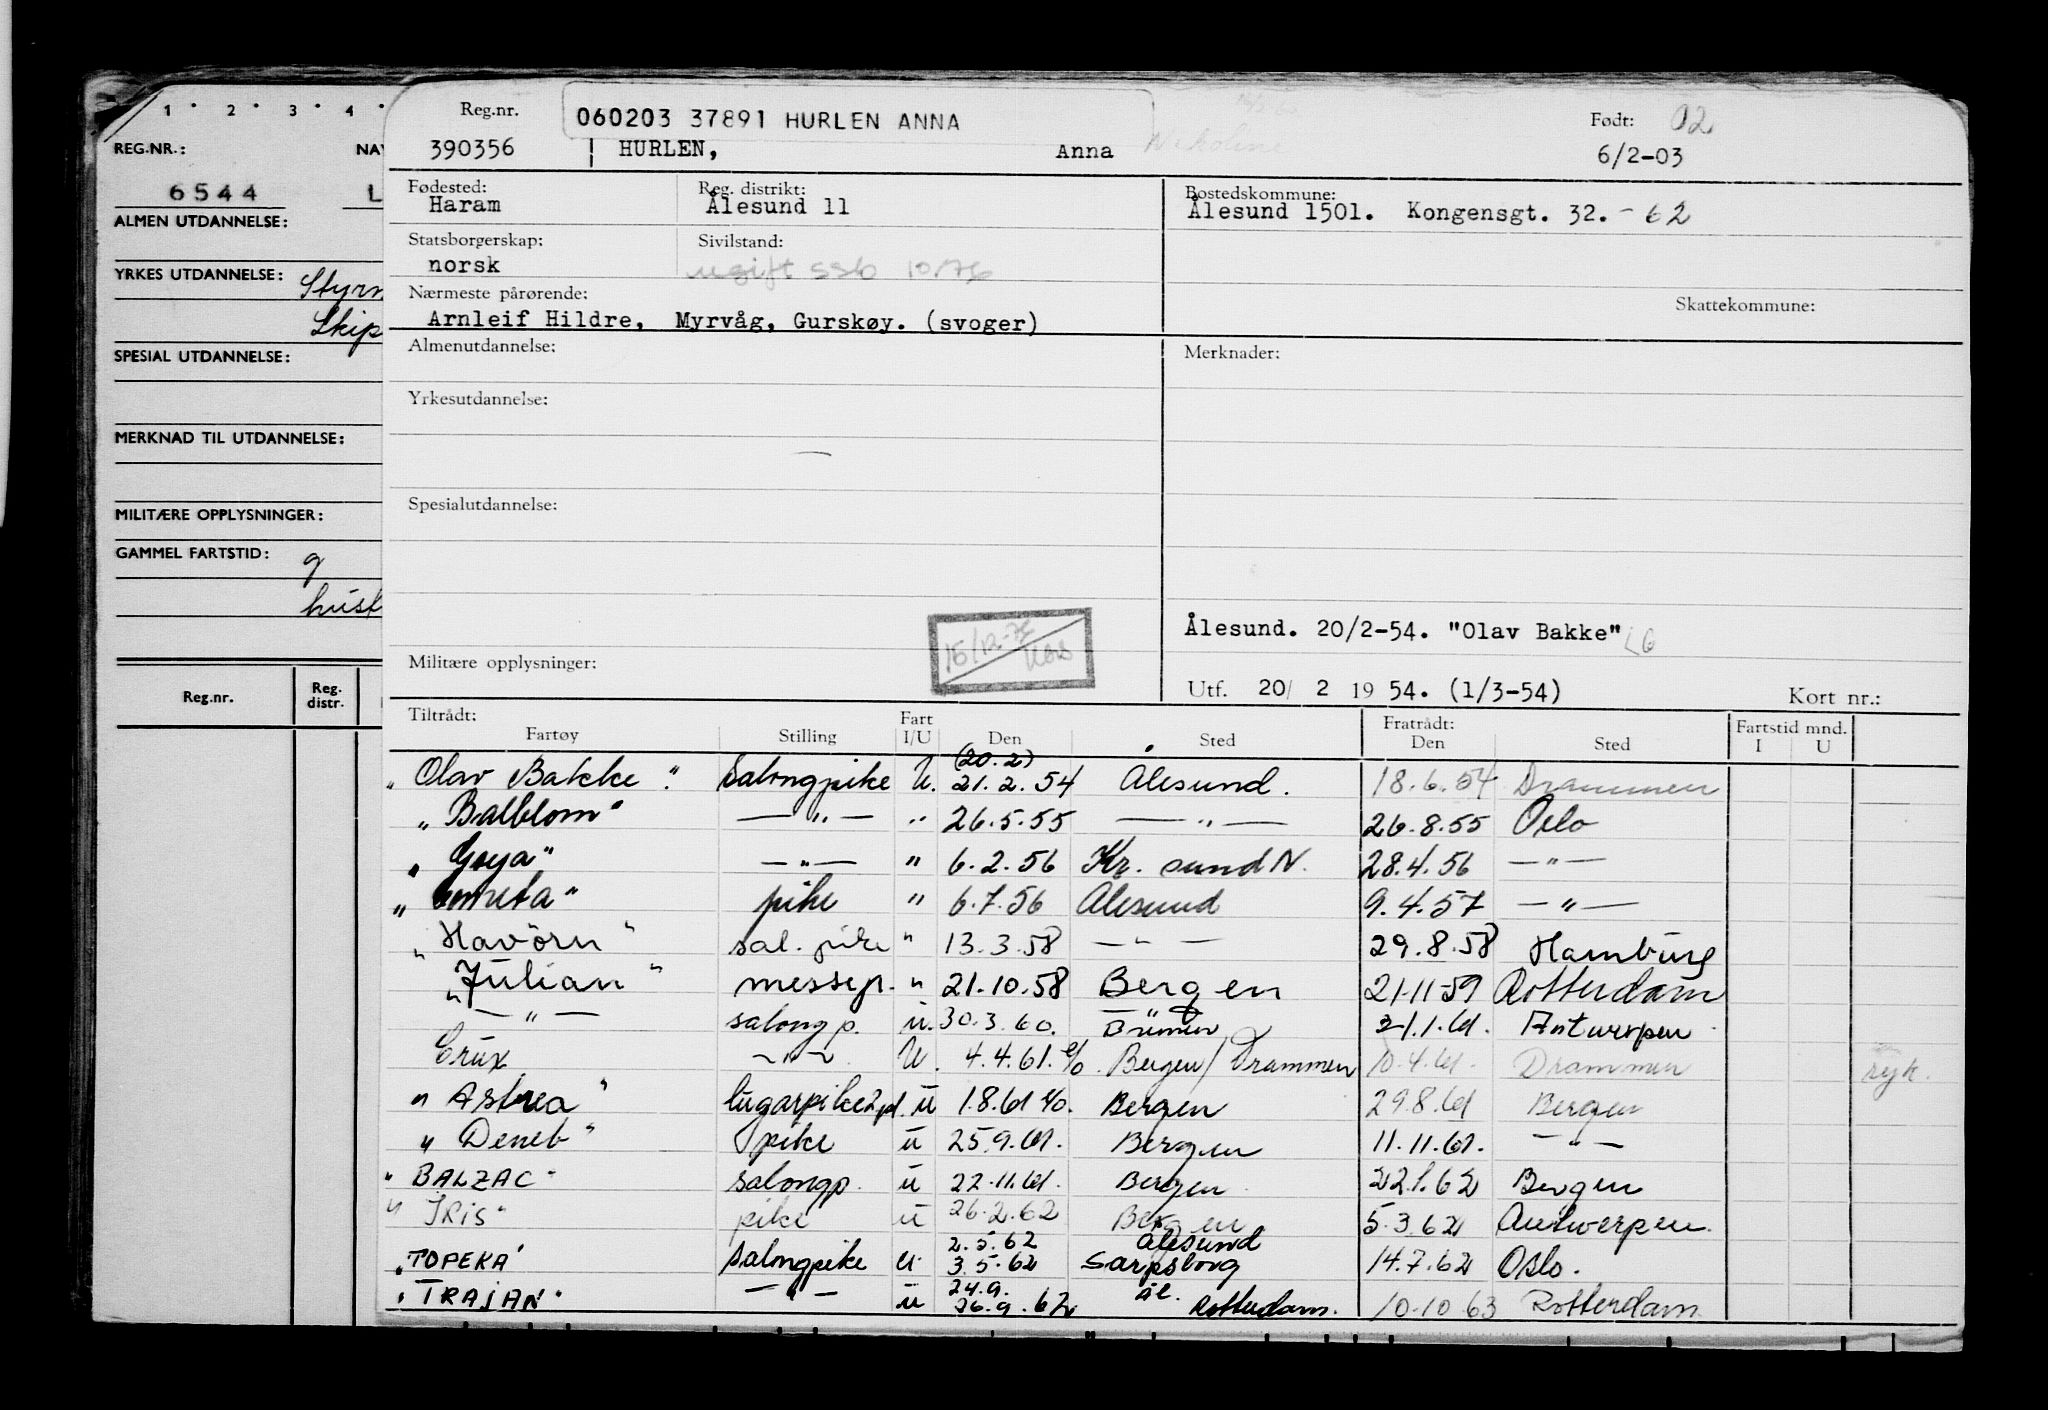 1 · 2 · 3 · 4 ·
REG.NR.: NAV
6544 L
ALMEN UTDANNELSE:
YRKES UTDANNELSE: Styrm
Skip
SPESIAL UTDANNELSE:
MERKNAD TIL UTDANNELSE:
MILITÆRE OPPLYSNINGER:
GAMMEL FARTSTID: g
hust
Reg.nr. Reg. distr.
Reg.nr. 060203 37891 HURLEN ANNA Født: 02
390356 HURLEN, Anna Nikoline 6/2-03
Fødested: Reg. distrikt: Bostedskommune:
Haram Ålesund 11 Ålesund 1501. Kongensgt. 32. - 62
Statsborgerskap: Sivilstand:
norsk ugift SSB 10/76
Nærmeste pårørende: Skattekommune:
Arnleif Hildre, Myrvåg, Gurskøy. (svoger)
Almenutdannelse: Merknader:
Yrkesutdannelse:
Spesialutdannelse:
Ålesund. 20/2-54. "Olav Bakke"
15/12-76
Militære opplysninger:
Utf. 20/ 2 19 54. (1/3-54) Kort nr.:
Tiltrådt: Fart Fratrådt: Fartstid mnd.
Fartøy Stilling I/U Den Sted Den Sted I U
(20.2)
"Olav Bakke" Salongpike U. 21.2.54 Ålesund. 18.6.54 Drammen
"Balblom" — " — " 26.5.55 — " — 26.8.55 Oslo
"Goya" — " — " 6.2.56 Kr. sund N. 28.4.56 — " —
"Cometa" pike " 6.7.56 Ålesund 9.4.57 — " —
"Havörn" sal. pike " 13.3.58 — " — 29.8.58 Hamburg
"Julian" messep. " 21.10.58 Bergen 21.11.59 Rotterdam
— " — salong p. u. 30.3.60. 21.1.61. Antwerpen
Crux — " — U. 4.4.61. e/o. Bergen/Drammen 10.4.61. Drammen syk.
"Astrea" lugarpike u 1.8.61 e/o. Bergen 29.8.61 Bergen
"Deneb" pike u 25.9.61. Bergen 11.11.61. — " —
"BALZAC" salongp. u 22.11.61. Bergen 22.1.62 Bergen
"Iris" pike u 26.2.62 Bergen 5.3.62 Antwerpen.
2.5.62 Ålesund
"TOPEKA" Salongpike u. 3.5.62 Sarpsborg 14.7.62 Oslo.
24.9. Ål.
"TRAJAN" — " — u 26.9.62 Rotterdam. 10.10.63 Rotterdam